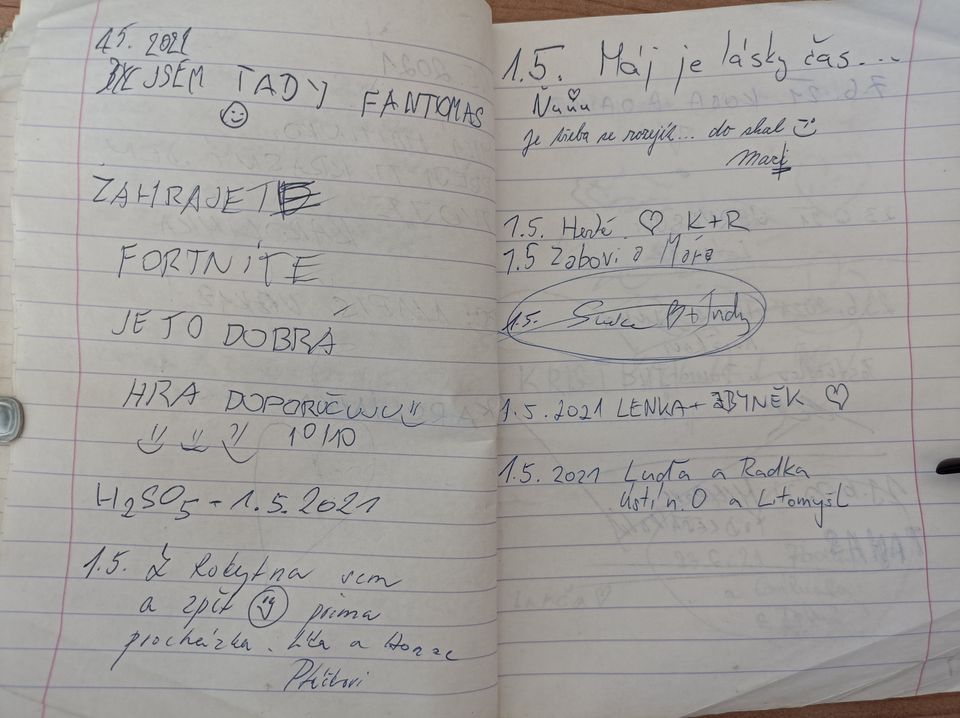 1.5. 2021
JSEM TADY FANTOMAS
ZAHRAJET
FORTNITE
JE TO DOBRÁ
HRA DOPORUČUJU
10/10
H2SO5 - 1.5.2021
1.5. Z Rokytna sem
a zpět prima
procházka. Líta a Honza
1.5. Máj je lásky čas...
Ňuňu
Je třeba se rozejít... do skal
Mart
1.5. ♡ K+R
1.5 Zabovi a Mára
1.5. + Jndy
1.5.2021 LENKA + ZBYNĚK ♡
1.5.2021 Luďa a Radka
Ústí n. O a Litomyšl